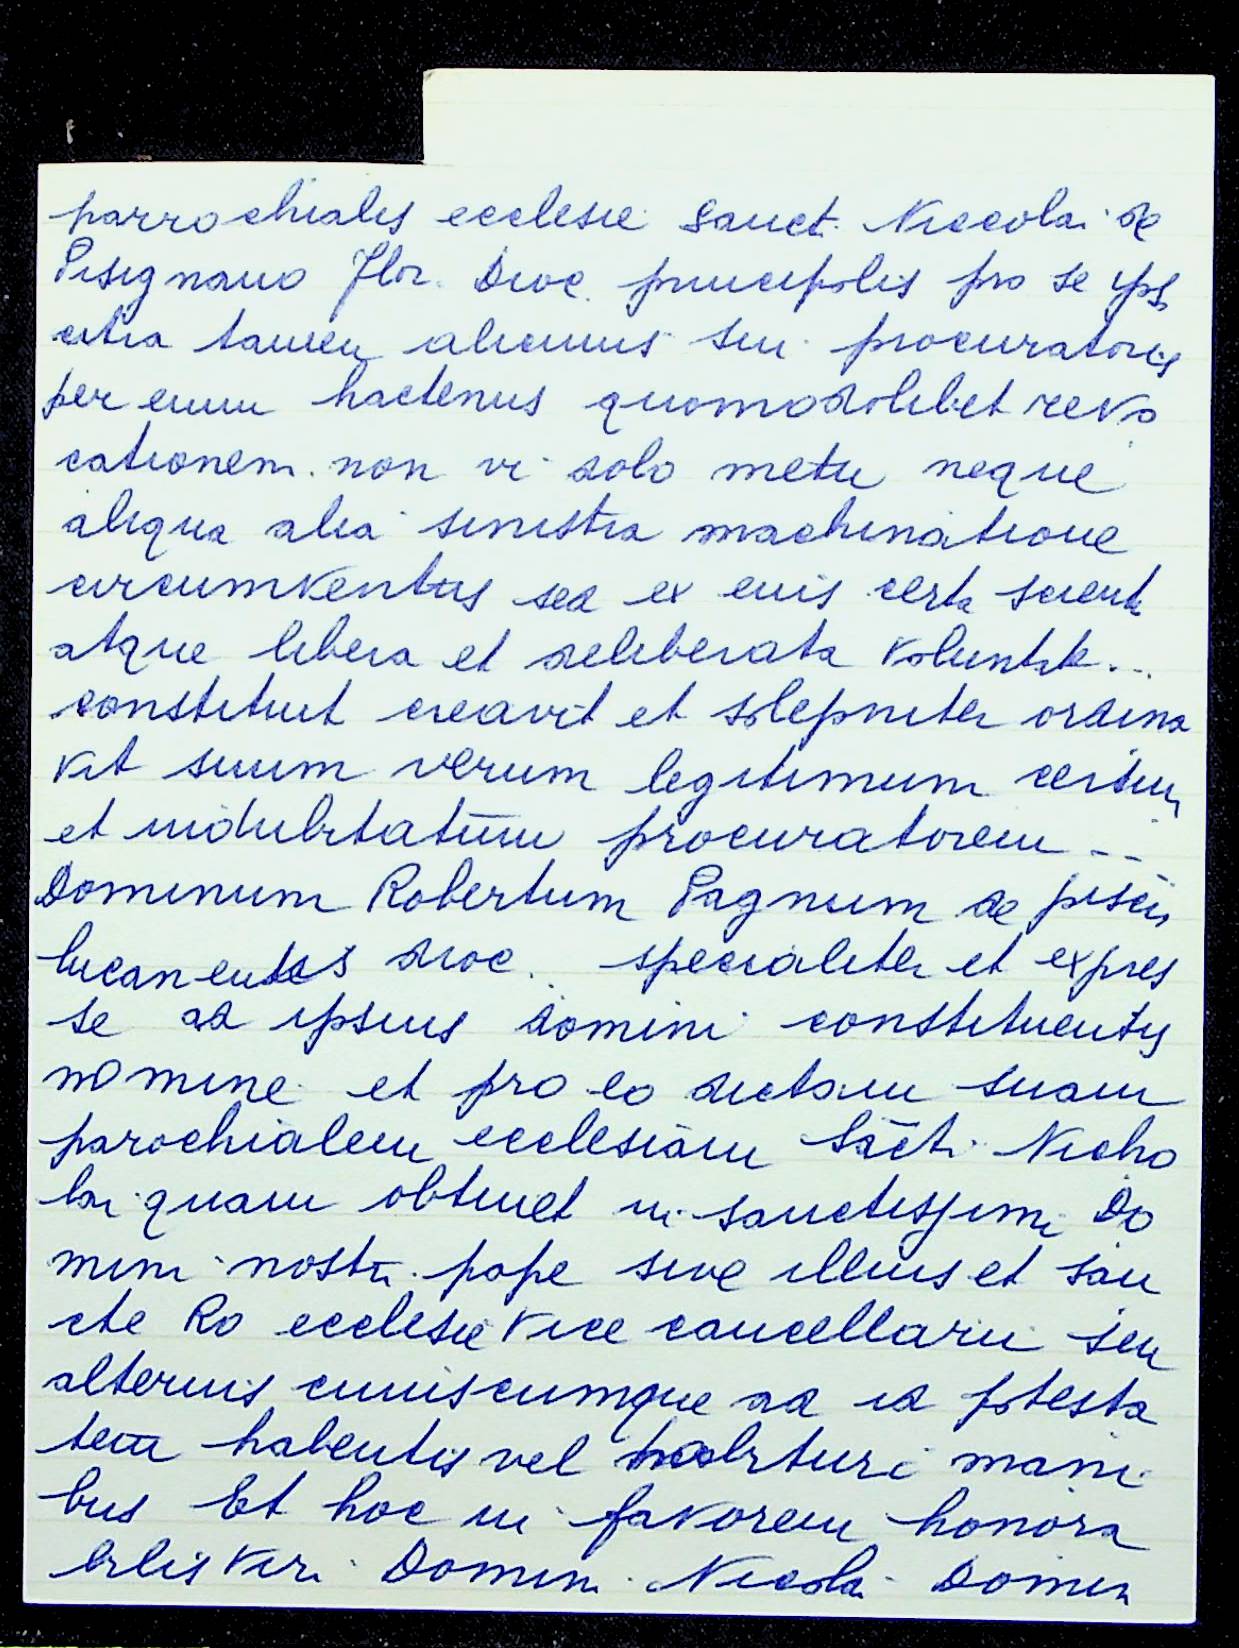 parrochialis ecclesie Sanct. Niccolai de
Pisignano Flor. Dioc. principalis pro se ips.
citra tamen alicuius sui procuratoris
per eum hactenus quomodolibet revo
cationem. non vi dolo metu neque
aliqua alia sinistra machinatione
circumventus sed ex eius certa scient
atque libera et deliberata volunta...
constituit creavit et solepniter ordina
vit suum verum legitimum certum
et indubitatum procuratorem --
Dominum Robertum Pagnum de
lucanensis dioc. specialiter et expres
se ad ipsius domini constituentis
nomine et pro eo dictam suam
parochialem ecclesiam Sācti Nicho
lai quam obtinet in sanctissimi Do
mini nostri pape sive illius et san
cte Ro ecclesie vice cancellarii seu
alterius cuiuscumque ad id potesta
tem habentis vel habituri mani
bus Et hoc in favorem honora
bilis viri Domini Nicolai Domin